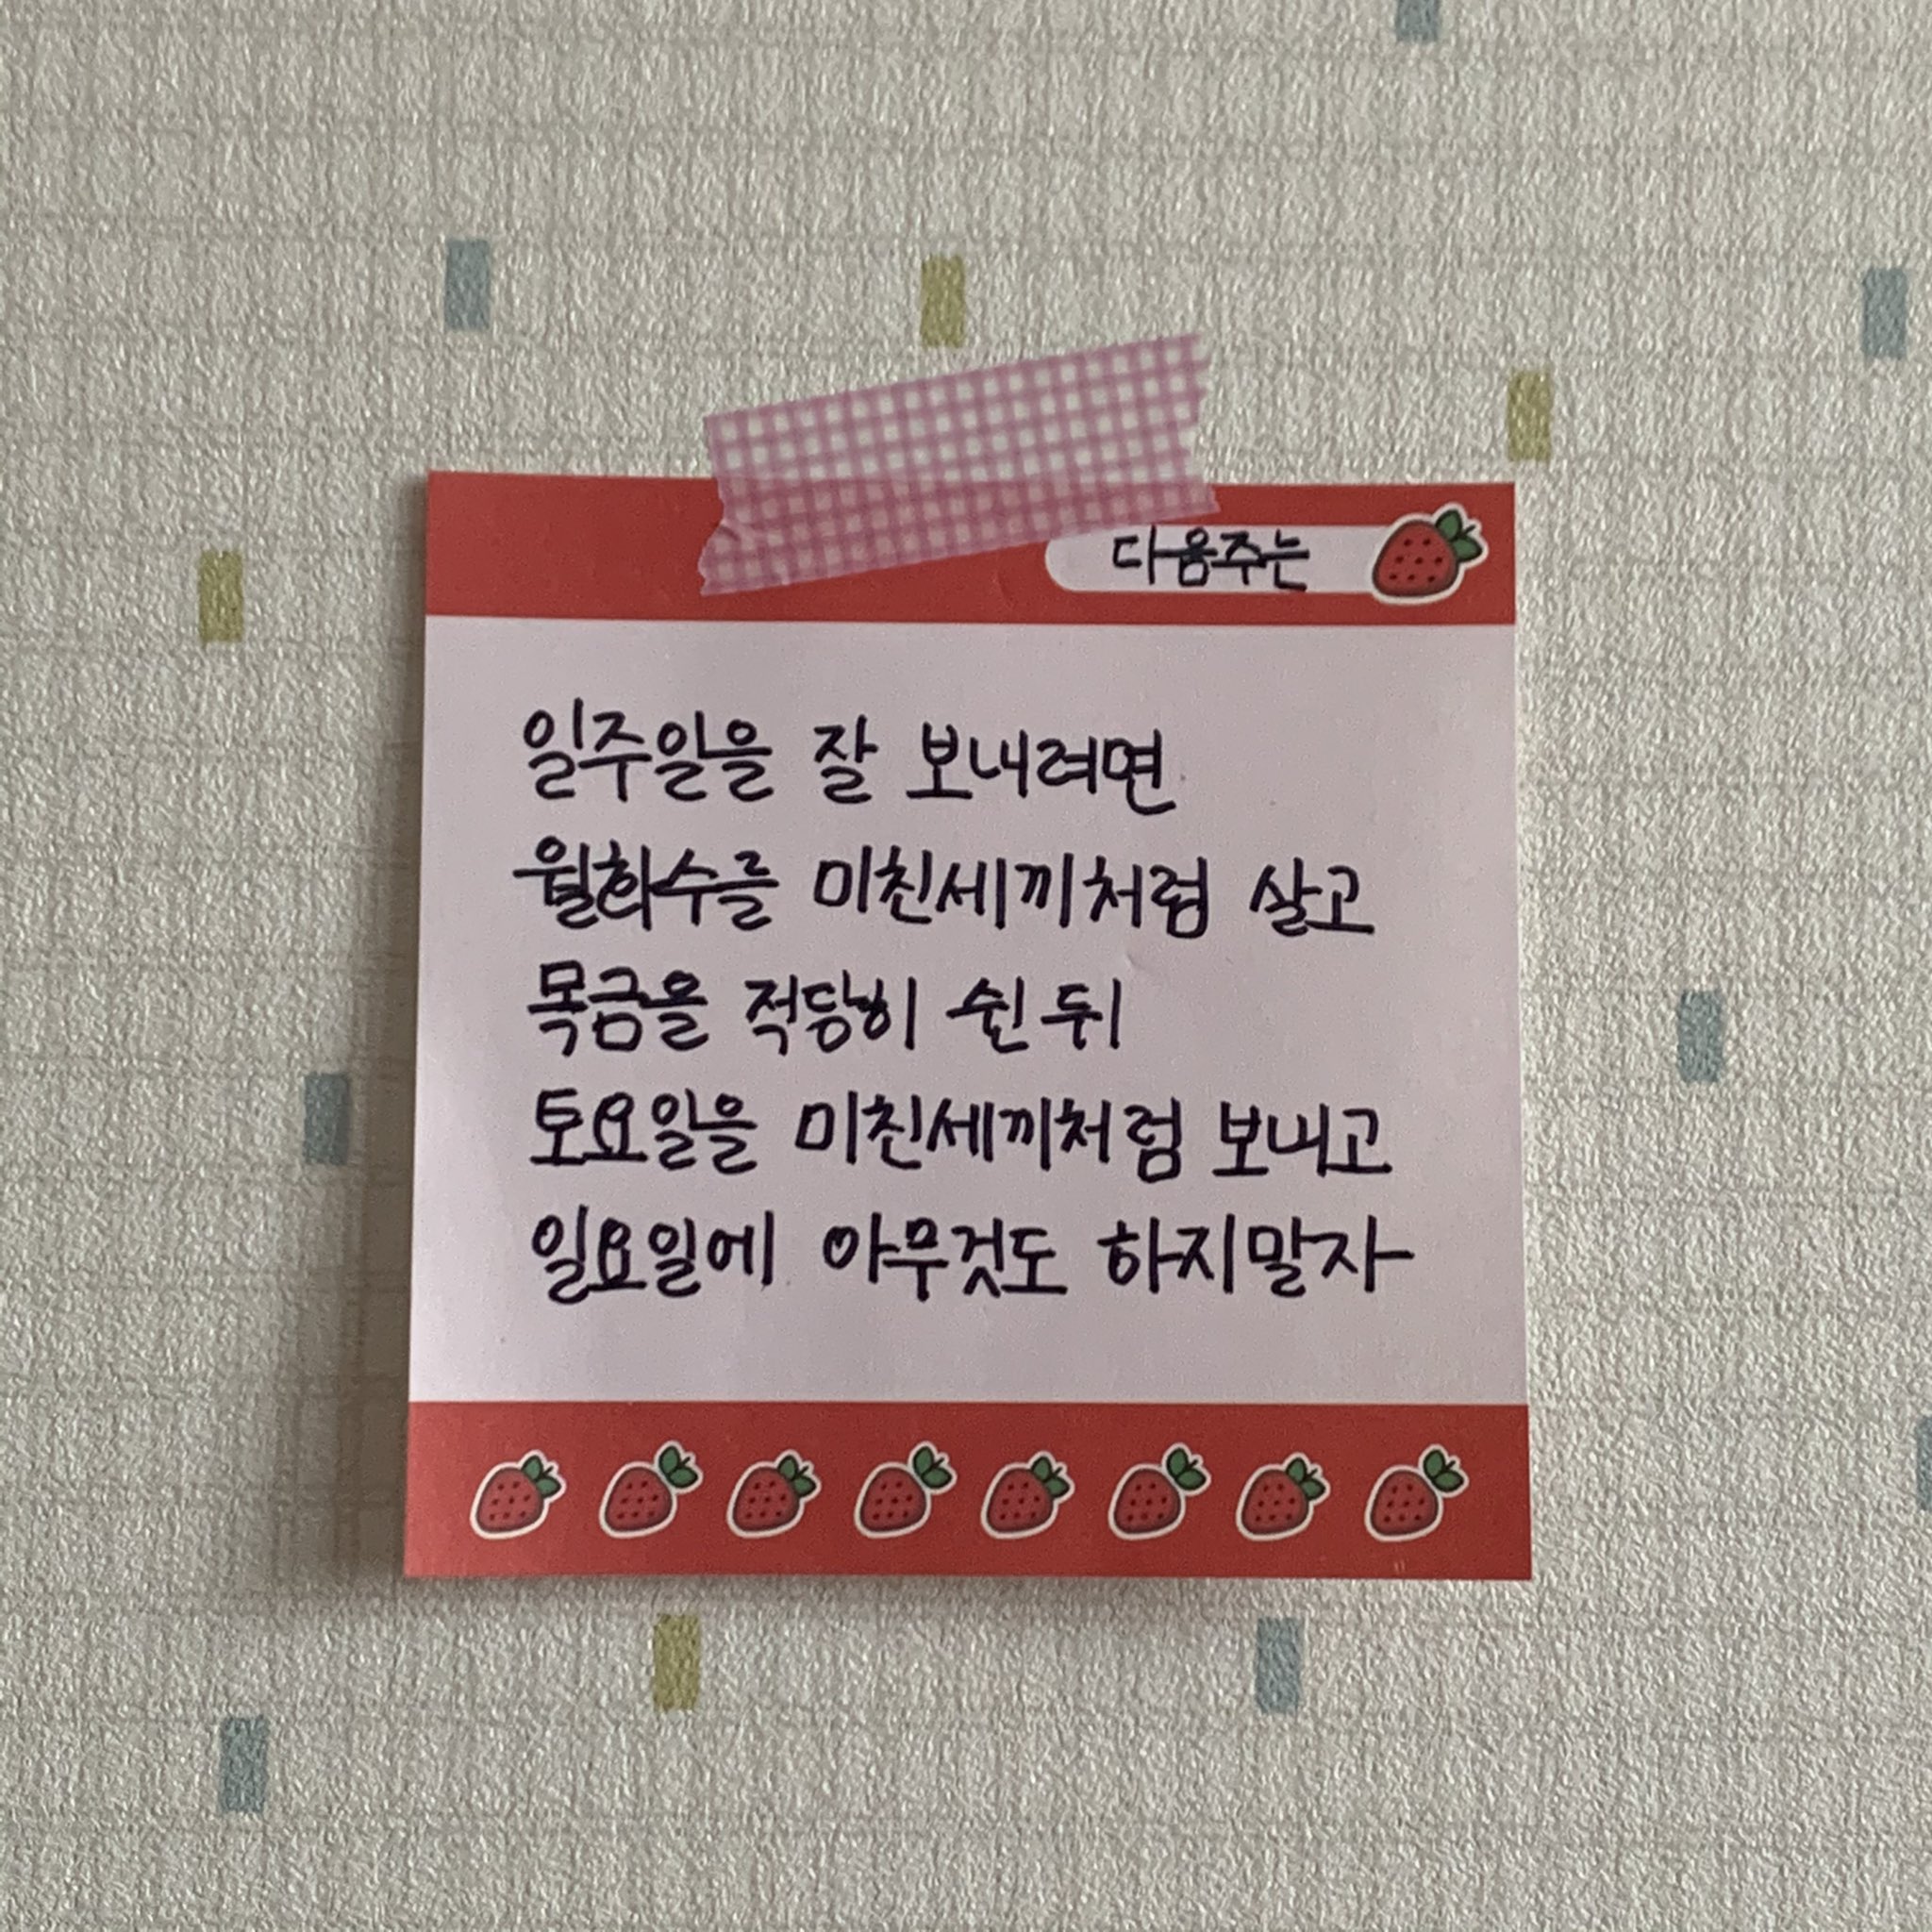 다음주는
일주일을 잘 보내려면
월화수를 미친세끼처럼 살고
목금을 적당히 쉰 뒤
토요일을 미친세끼처럼 보내고
일요일에 아무것도 하지말자